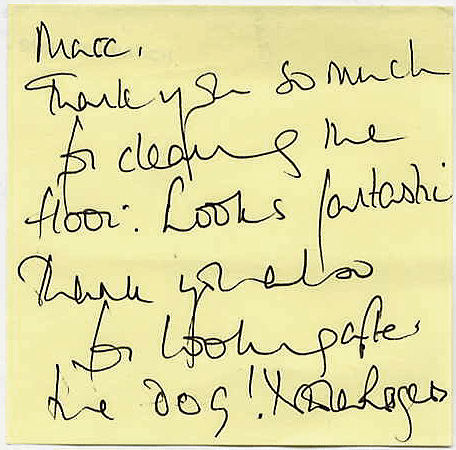 Marc,
Thank you so much
for cleaning the
floor. Looks fantastic
Thank you also
for looking after
the dog! X